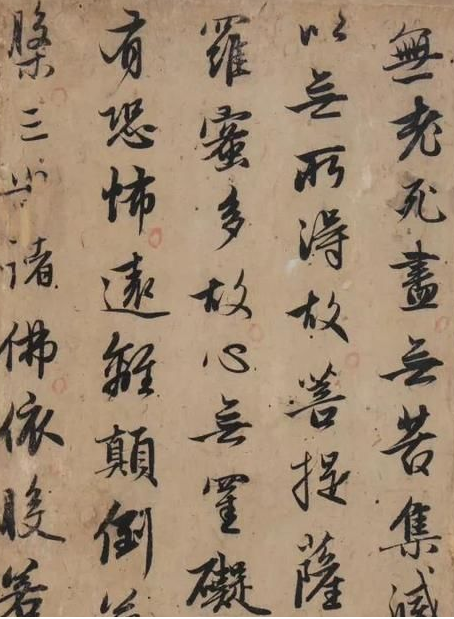 無老死盡无苦集滅
以无所得故菩提薩
羅蜜多故心无罣礙
有恐怖遠離顛倒
槃三世諸佛依般若